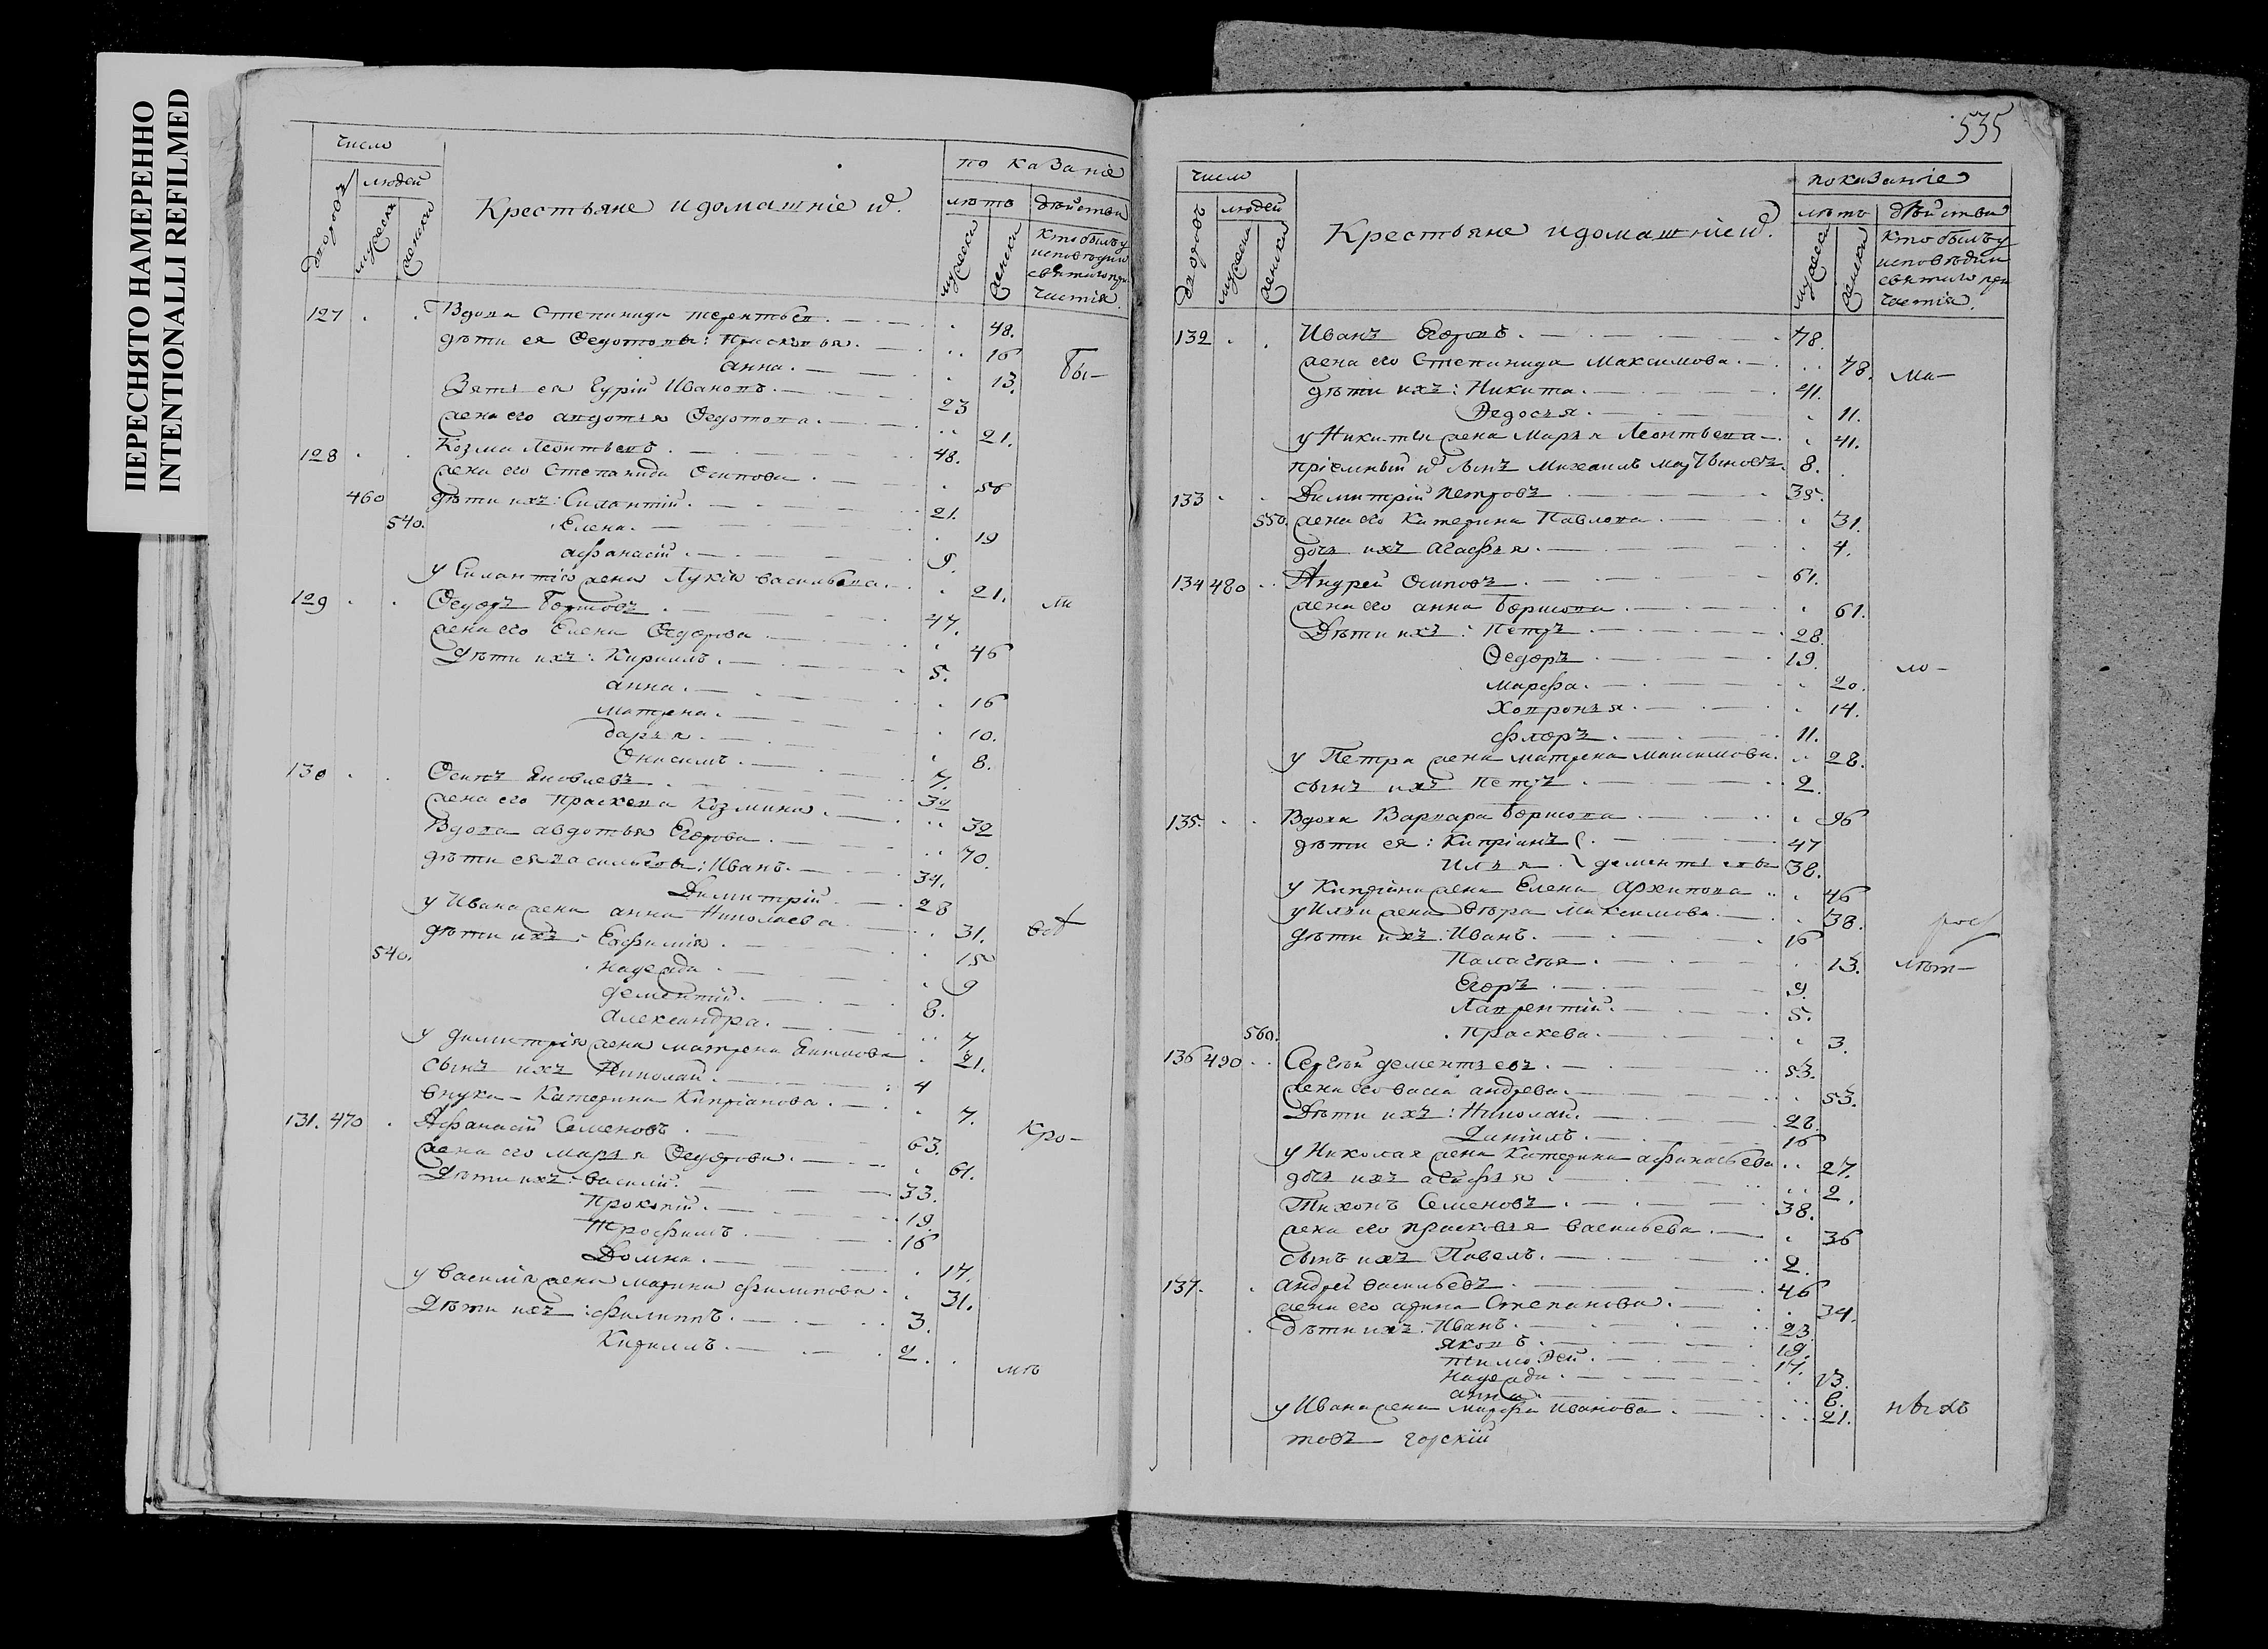 ПЕРЕСНЯТО НАМЕРЕННО
INTENTIONALLI REFILMED
число
по казаніе
людей
дворовъ
мужеска
женска
Крестьяне и домашніе ихъ.
лѣтъ
дѣйства
мужеска
женска
кто былъ у
исповѣди и
святаго при
частія
127 Вдова Степанида терентьев. 48.
дѣти ея Федотовы: Прасковья. 16
анна. 13. бы-
Зять ея Гурій Ивановъ. 23
жена его авдотья Федотова. 21.
128 Козма Леонтьевъ 48.
жена его Степанида Осипова 50
460 дѣти ихъ: Силантій. 21.
540. Елена. 19
афанасій. 9.
у Силантія жена Лукія васильева. 21. ли
129 Федоръ Борисовъ 47.
жена его Елена Федорова 46
Дѣти ихъ: Кириллъ. 5.
анна. 16
матрена. 10.
дарья. 8.
Онисимъ. 7.
130 Осипъ Яковлевъ 32
жена его Праскева Козмина. 32
Вдова авдотья Егорова. 70.
дѣти ея васильевы: Иванъ. 34.
Димитрій 28
у Ивана жена анна Николаева 31. всѣ
дѣти ихъ: Евфимія. 15
540. надежда. 9
дементій. 8.
Александра. 7
у димитрія жена матрена 21.
сынъ ихъ Николай. 4
внука - Катерина Кипріанова. 7.
131. 470 Афанасій Семеновъ 63. кро-
жена его марья Федорова. 61.
Дѣти ихъ: василій. 33.
Прокопій. 19.
Трофимъ 16
Домна. 17.
у василія жена марина филипова 31.
Дѣти ихъ: филиппъ. 3.
Кириллъ. 2. мѣ
535
число
показаніе
людей
дворовъ
мужеска
женска
Крестьяне и домашніе ихъ.
лѣтъ
дѣйства
мужеска
женска
кто былъ у
исповѣди и
святаго при
частія.
132 Иванъ Егоровъ. 78.
жена его Степанида Максимова. 78. ма-
дѣти ихъ: Никита. 41.
Федосья. 11.
у Никиты жена Марья Леонтьева 41.
пріемный ихъ сынъ Михаилъ 8.
133 Димитрій петровъ 35.
550. жена его Катерина Павлова 31.
дочь ихъ Агафья. 4.
134 480 Андрей Осиповъ 61.
жена его анна борисова 61.
Дѣти ихъ: Петръ 28
Федоръ 19. ло-
марфа. 20.
Ховронья. 14.
флоръ. 11.
у Петра жена матрена максимова. 28.
сынъ ихъ петръ 2.
135. Вдова Варвара борисова 96
дѣти ея: Кипріанъ 47
Илья дементьевы 38.
у Кипріана жена Елена Архипова 46
у Ильи жена вѣра максимова. 38.
дѣти ихъ: Иванъ. 16
Палагея. 13. лѣт-
Егоръ 9.
Лаврентій. 5.
560. Праскева. 3.
136 490 Сергѣй дементьевъ. 53.
жена его васса андрева. 53.
Дѣти ихъ: Николай. 28.
Даніилъ. 16
у Николая жена Катерина афанасьева 27.
дочь ихъ агафья 2.
Тихонъ Семеновъ 38.
жена его прасковья васильева. 36
сынъ ихъ Павелъ. 2.
137. андрей васильевъ 46
жена его арина Степанова. 34.
дѣти ихъ: Иванъ. 23
яковъ 19.
тимофей 17.
надежда. 13.
анна. 6.
у Ивана жена марфа иванова. 21.
товъ горскій